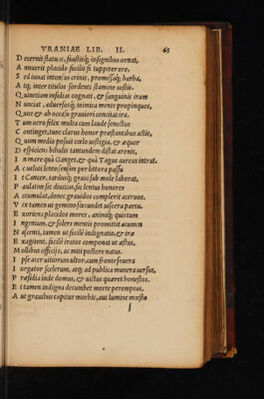 VRANIAE LIB. II. 65
D ecernit statuas, fastisq; insignibus ornat,
A nnuerit placido facilis si iuppiter ore.
S ed iuuat intonsus crinis, promissaq; barba,
A tq; inter titulos sordenti stamine uestis.
Q uinetiam insidias cognati, & sanguinis iram
N unciat, aduersosq; inimica mente propinquos,
Q uos & ab occasu grauiori concitat ira.
T um uero felix multa cum laude senectus
C ontinget, tunc clarus honor præstantibus actis,
Q uum medio posuit cœlo uestigia, & æquor
D espiciens bibulis tantundem distat arenis,
I n mare quà Ganges, & quà Tagus aureus intrat.
A c ueluti lento sensim per littora passu
I t Cancer, tarduíq; graui sub mole laborat,
P aulatim sic diuitias, sic lentus honores
A ccumulat, donec grauidos complerit aceruos.
V t tamen ut gemino fœcundet uiscera partu.
E xoriens placidos mores, animúq; quietum
I ngenium, & solers mentis promittit acumen
N ascenti, tamen ut facilè indignatio, & iræ
E xagitent, facilè iratos componat ut æstus,
M ollibus officijs, ac miti pectore natus.
I pse acer uitiorum ultor, cum fronte seuera
I urgator scelerum, atq; ad publica munera uersus,
P ræsidia inde domus, & uictus quæret honestos.
E t tamen indigna decumbet morte peremptus,
A ut grauibus capitur morbis, aut lumine mœsto